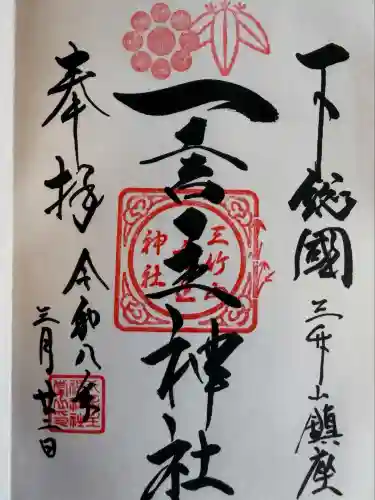 下総國
三竹山鎮座
一言主神社
三竹山
神社
奉拝
令和八年
三月廿二日